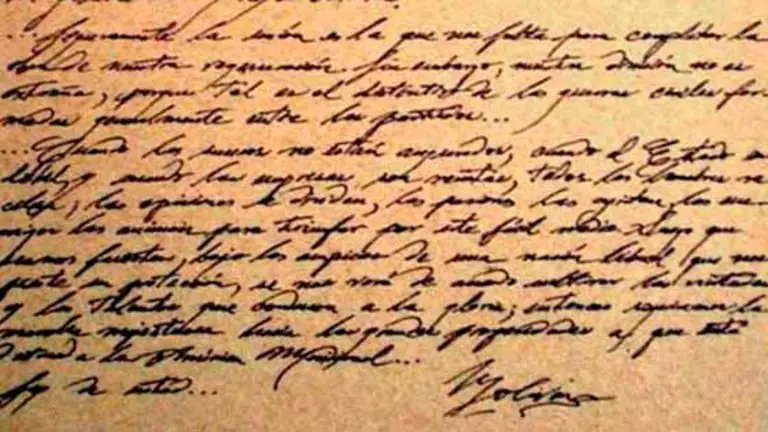 ...Seguramente la unión es la que nos falta para completar la
obra de nuestra regeneración. Sin embargo, nuestra división no es
extraña, porque tal es el distintivo de las guerras civiles for-
madas generalmente entre los partidos...
...Cuando los sucesos no están asegurados, cuando el Estado es
débil, y cuando las empresas son remotas, todos los hombres va-
cilan; las opiniones se dividen, las pasiones las agitan, los ene-
migos las animan para triunfar por este fácil medio. Luego que
seamos fuertes, bajo los auspicios de una nación liberal que nos
preste su protección, se nos verá de acuerdo cultivar las virtudes
y los talentos que conducen a la gloria; entonces seguiremos la
marcha majestuosa hacia las grandes prosperidades a que está
destinada la América Meridional...
Soy de usted... Bolívar